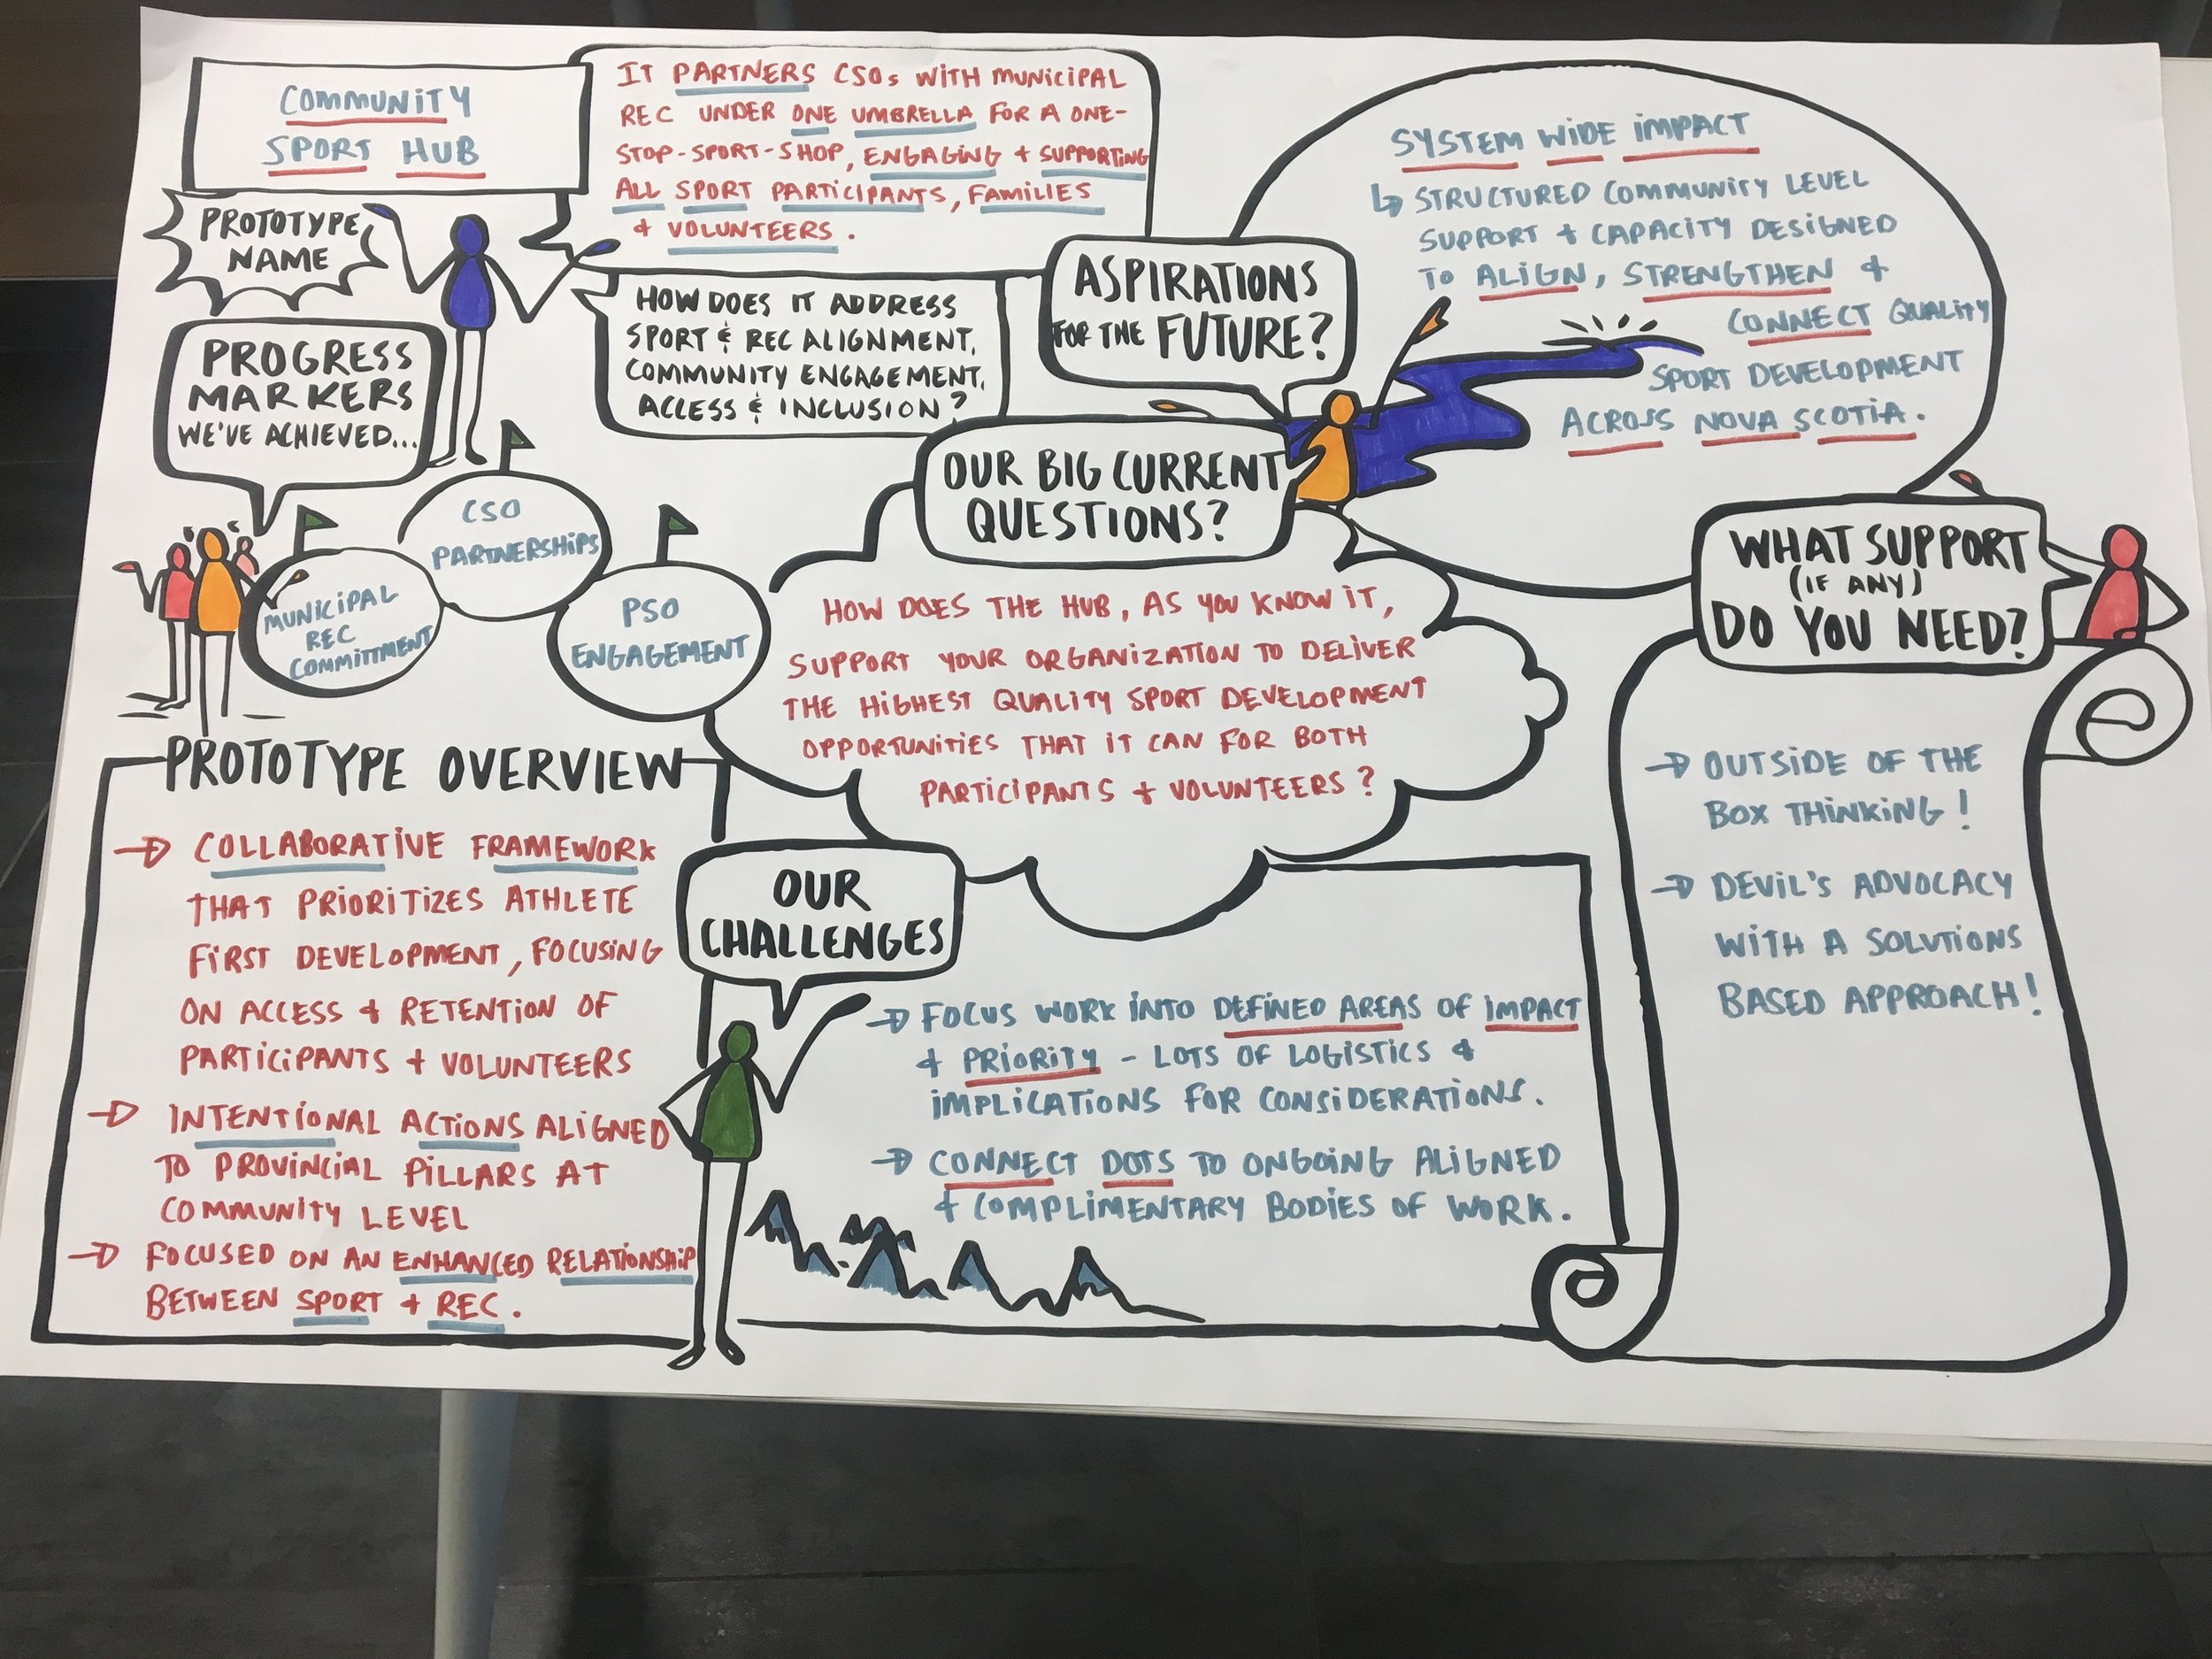 COMMUNITY
SPORT HUB
PROTOTYPE
NAME
IT PARTNERS CSOs WITH MUNICIPAL
REC UNDER ONE UMBRELLA FOR A ONE-
STOP-SPORT-SHOP, ENGAGING + SUPPORTING
ALL SPORT PARTICIPANTS, FAMILIES
+ VOLUNTEERS.
HOW DOES IT ADDRESS
SPORT & REC ALIGNMENT,
COMMUNITY ENGAGEMENT,
ACCESS & INCLUSION?
ASPIRATIONS
FOR THE FUTURE?
SYSTEM WIDE IMPACT
↳ STRUCTURED COMMUNITY LEVEL
SUPPORT + CAPACITY DESIGNED
TO ALIGN, STRENGTHEN +
CONNECT QUALITY
SPORT DEVELOPMENT
ACROSS NOVA SCOTIA.
PROGRESS
MARKERS
WE'VE ACHIEVED...
MUNICIPAL
REC
COMMITTMENT
CSO
PARTNERSHIPS
PSO
ENGAGEMENT
OUR BIG CURRENT
QUESTIONS?
HOW DOES THE HUB, AS YOU KNOW IT,
SUPPORT YOUR ORGANIZATION TO DELIVER
THE HIGHEST QUALITY SPORT DEVELOPMENT
OPPORTUNITIES THAT IT CAN FOR BOTH
PARTICIPANTS + VOLUNTEERS?
WHAT SUPPORT
(IF ANY)
DO YOU NEED?
→ OUTSIDE OF THE
BOX THINKING!
→ DEVIL'S ADVOCACY
WITH A SOLUTIONS
BASED APPROACH!
PROTOTYPE OVERVIEW
→ COLLABORATIVE FRAMEWORK
THAT PRIORITIZES ATHLETE
FIRST DEVELOPMENT, FOCUSING
ON ACCESS + RETENTION OF
PARTICIPANTS + VOLUNTEERS
→ INTENTIONAL ACTIONS ALIGNED
TO PROVINCIAL PILLARS AT
COMMUNITY LEVEL
→ FOCUSED ON AN ENHANCED RELATIONSHIP
BETWEEN SPORT + REC.
OUR
CHALLENGES
→ FOCUS WORK INTO DEFINED AREAS OF IMPACT
+ PRIORITY - LOTS OF LOGISTICS +
IMPLICATIONS FOR CONSIDERATIONS.
→ CONNECT DOTS TO ONGOING ALIGNED
+ COMPLIMENTARY BODIES OF WORK.